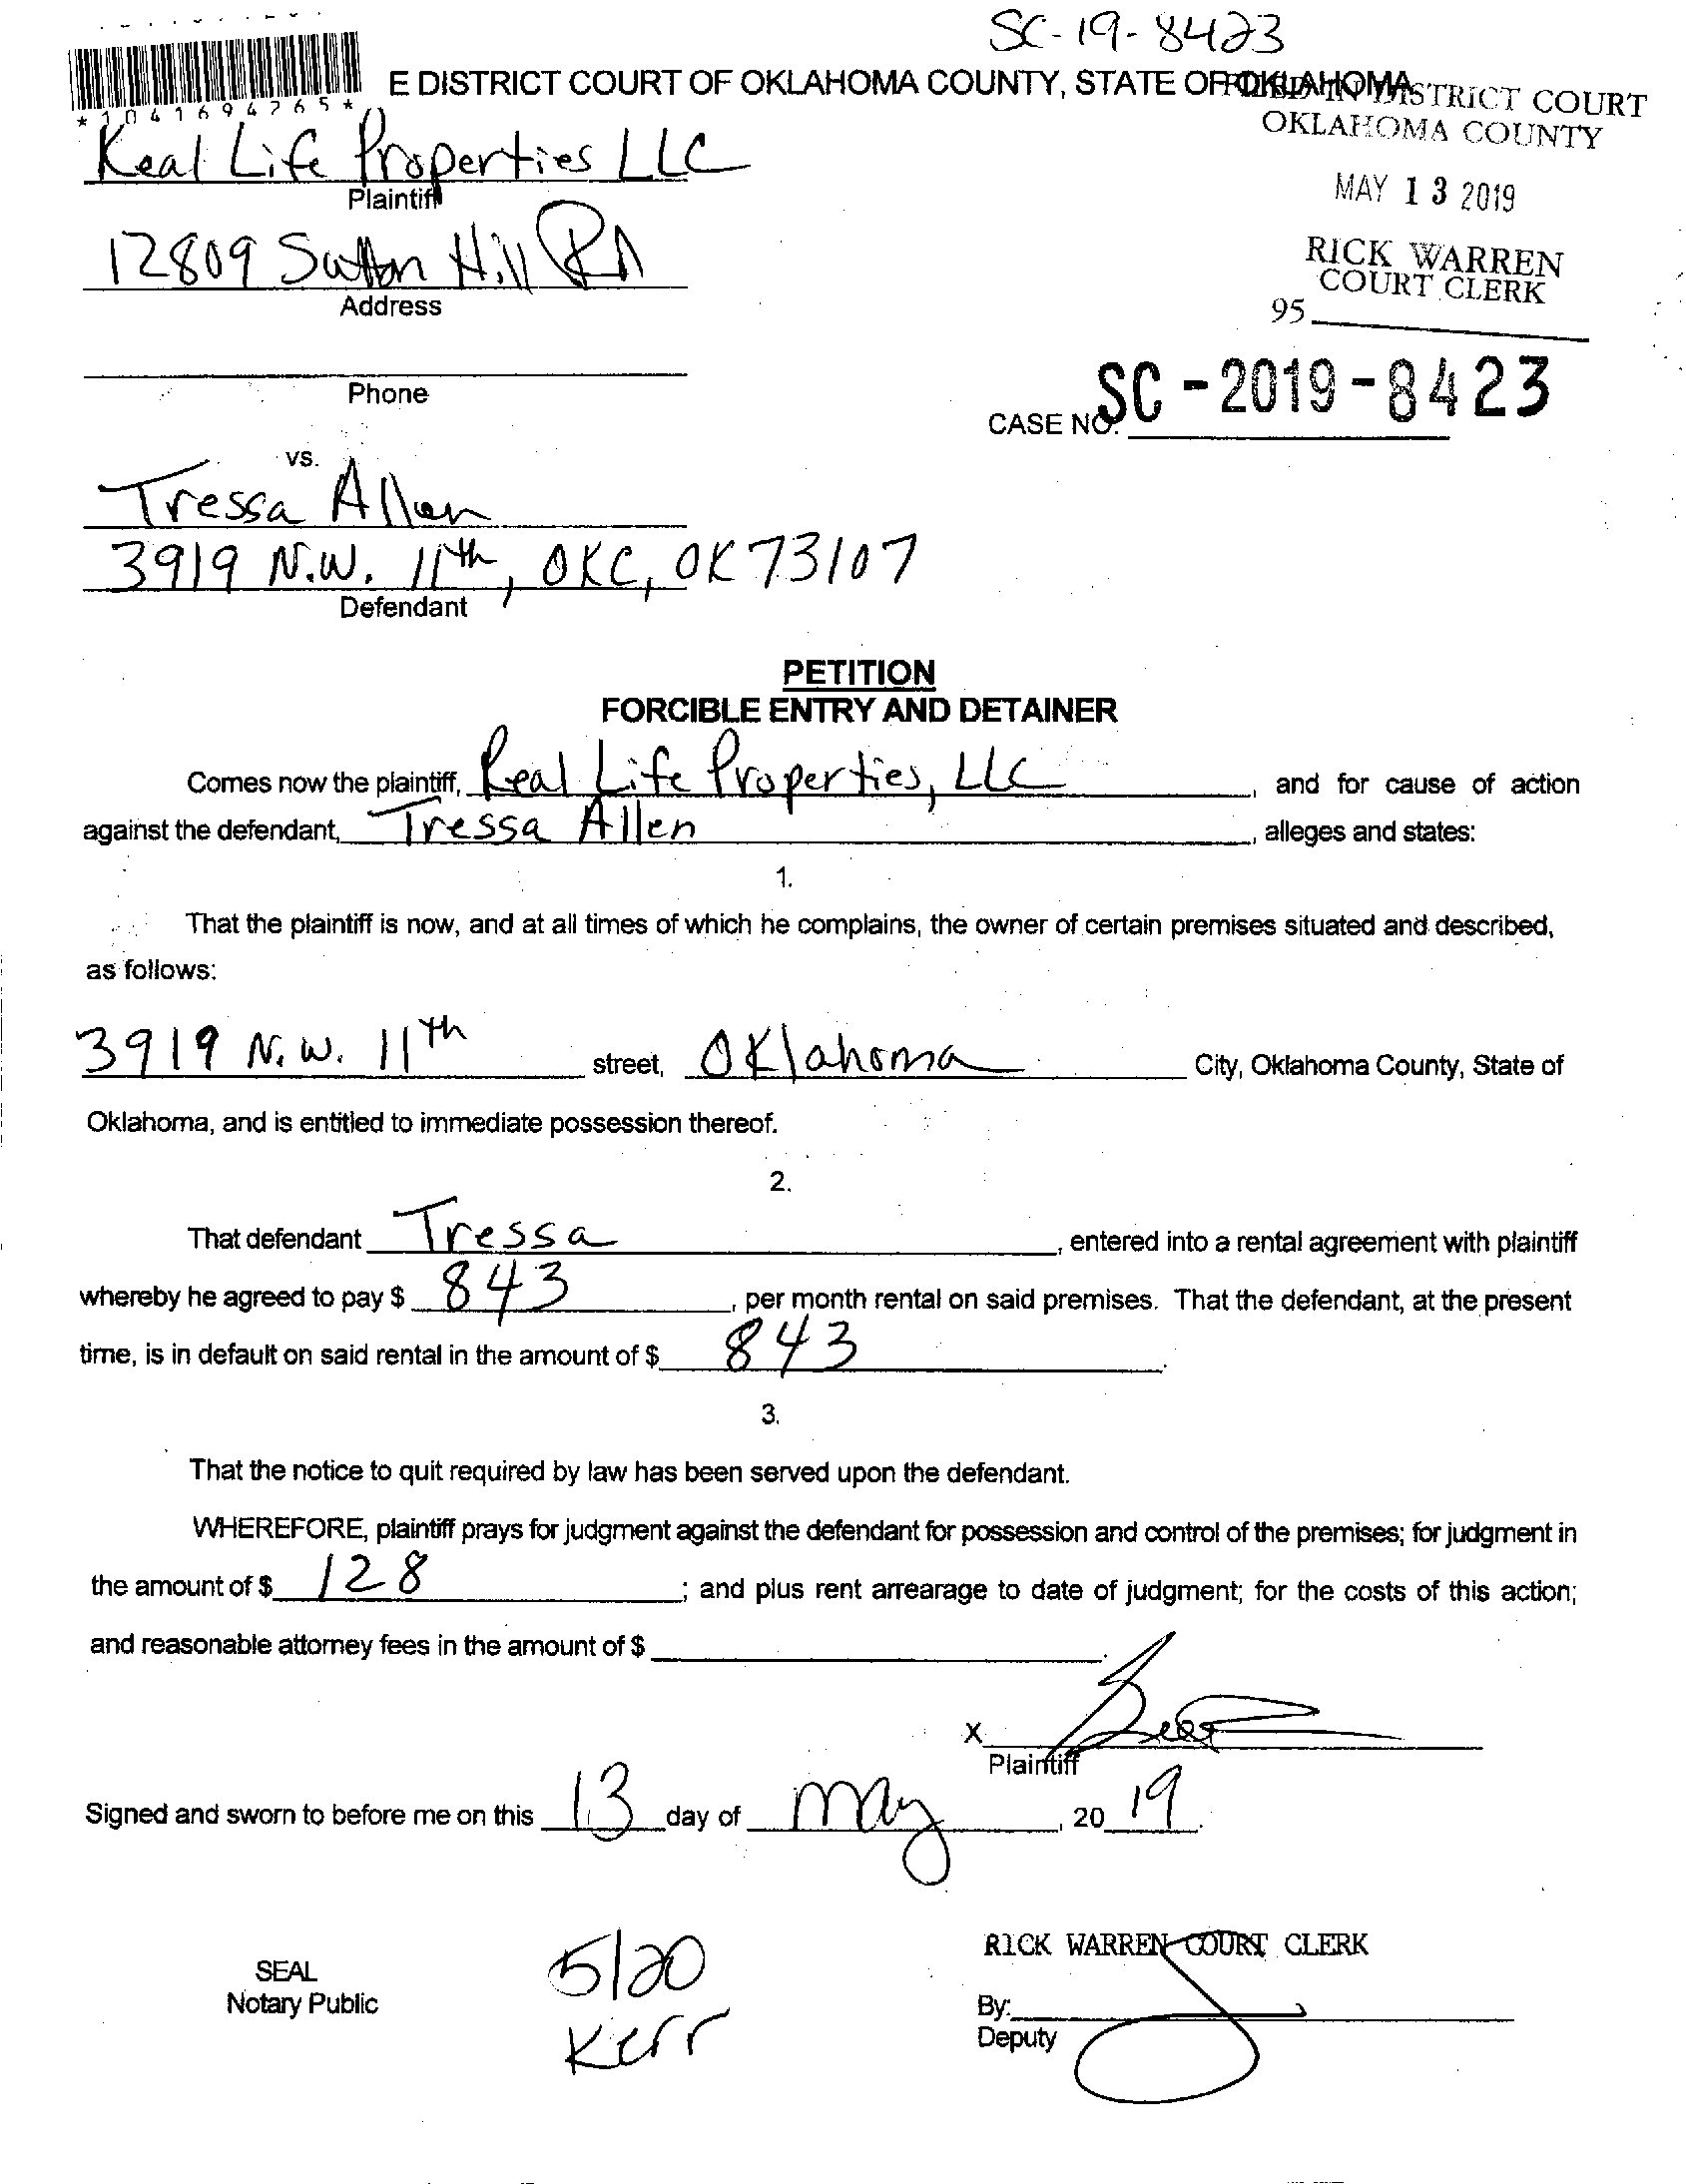 SC-19-8423
E DISTRICT COURT OF OKLAHOMA COUNTY, STATE OF OKLAHOMA
FILED IN DISTRICT COURT
OKLAHOMA COUNTY
*1041694765*
Real Life Properties LLC
Plaintiff
MAY 13 2019
12809 Sutton Hill Rd
Address
RICK WARREN
COURT CLERK
95
Phone
CASE NO. SC-2019-8423
vs.
Tressa Allen
3919 N.W. 11th, OKC, OK 73107
Defendant
PETITION
FORCIBLE ENTRY AND DETAINER
Comes now the plaintiff, Real Life Properties, LLC, and for cause of action
against the defendant, Tressa Allen, alleges and states:
1.
That the plaintiff is now, and at all times of which he complains, the owner of certain premises situated and described,
as follows:
3919 N.W. 11th street, Oklahoma City, Oklahoma County, State of
Oklahoma, and is entitled to immediate possession thereof.
2.
That defendant Tressa, entered into a rental agreement with plaintiff
whereby he agreed to pay $ 843, per month rental on said premises. That the defendant, at the present
time, is in default on said rental in the amount of $ 843.
3.
That the notice to quit required by law has been served upon the defendant.
WHEREFORE, plaintiff prays for judgment against the defendant for possession and control of the premises; for judgment in
the amount of $ 128; and plus rent arrearage to date of judgment; for the costs of this action;
and reasonable attorney fees in the amount of $ .
X
Plaintiff
Signed and sworn to before me on this 13 day of May, 2019.
SEAL
Notary Public
5/20
Kerr
RICK WARREN COURT CLERK
By:
Deputy